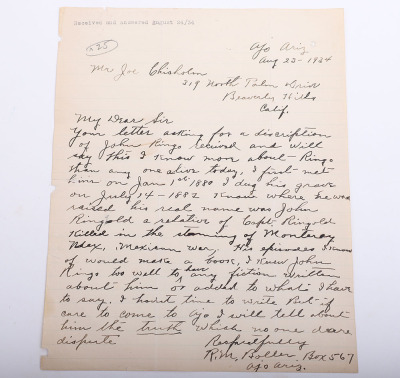 Received and answered August 26/24
#25
Ajo Ariz
Aug 23 - 1924
Mr Joe Chisholm
319 North Palm Drive
Beverly Hills
Calif.
My Dear Sir
Your letter asking for a discription
of John Ringo recived and will
say this I know more about Ringo
than any one alive today, I first met
him on Jan 1st 1880 I dug his grave
on July 14 - 1882 Know where he was
raised his real name was John
Ringold a relative of Capt Ringold
Killed in the storming of Monterey
Mex, Mexican war. His episodes I know
of would make a book, I knew John
Ringo too well to have any fiction written
about him or added to what I have
to say. I havit time to write But if
care to come to Ajo I will tell about
him the truth which no one dare
dispute Respectfully
R.M. Boller, Box 567
Ajo Ariz.